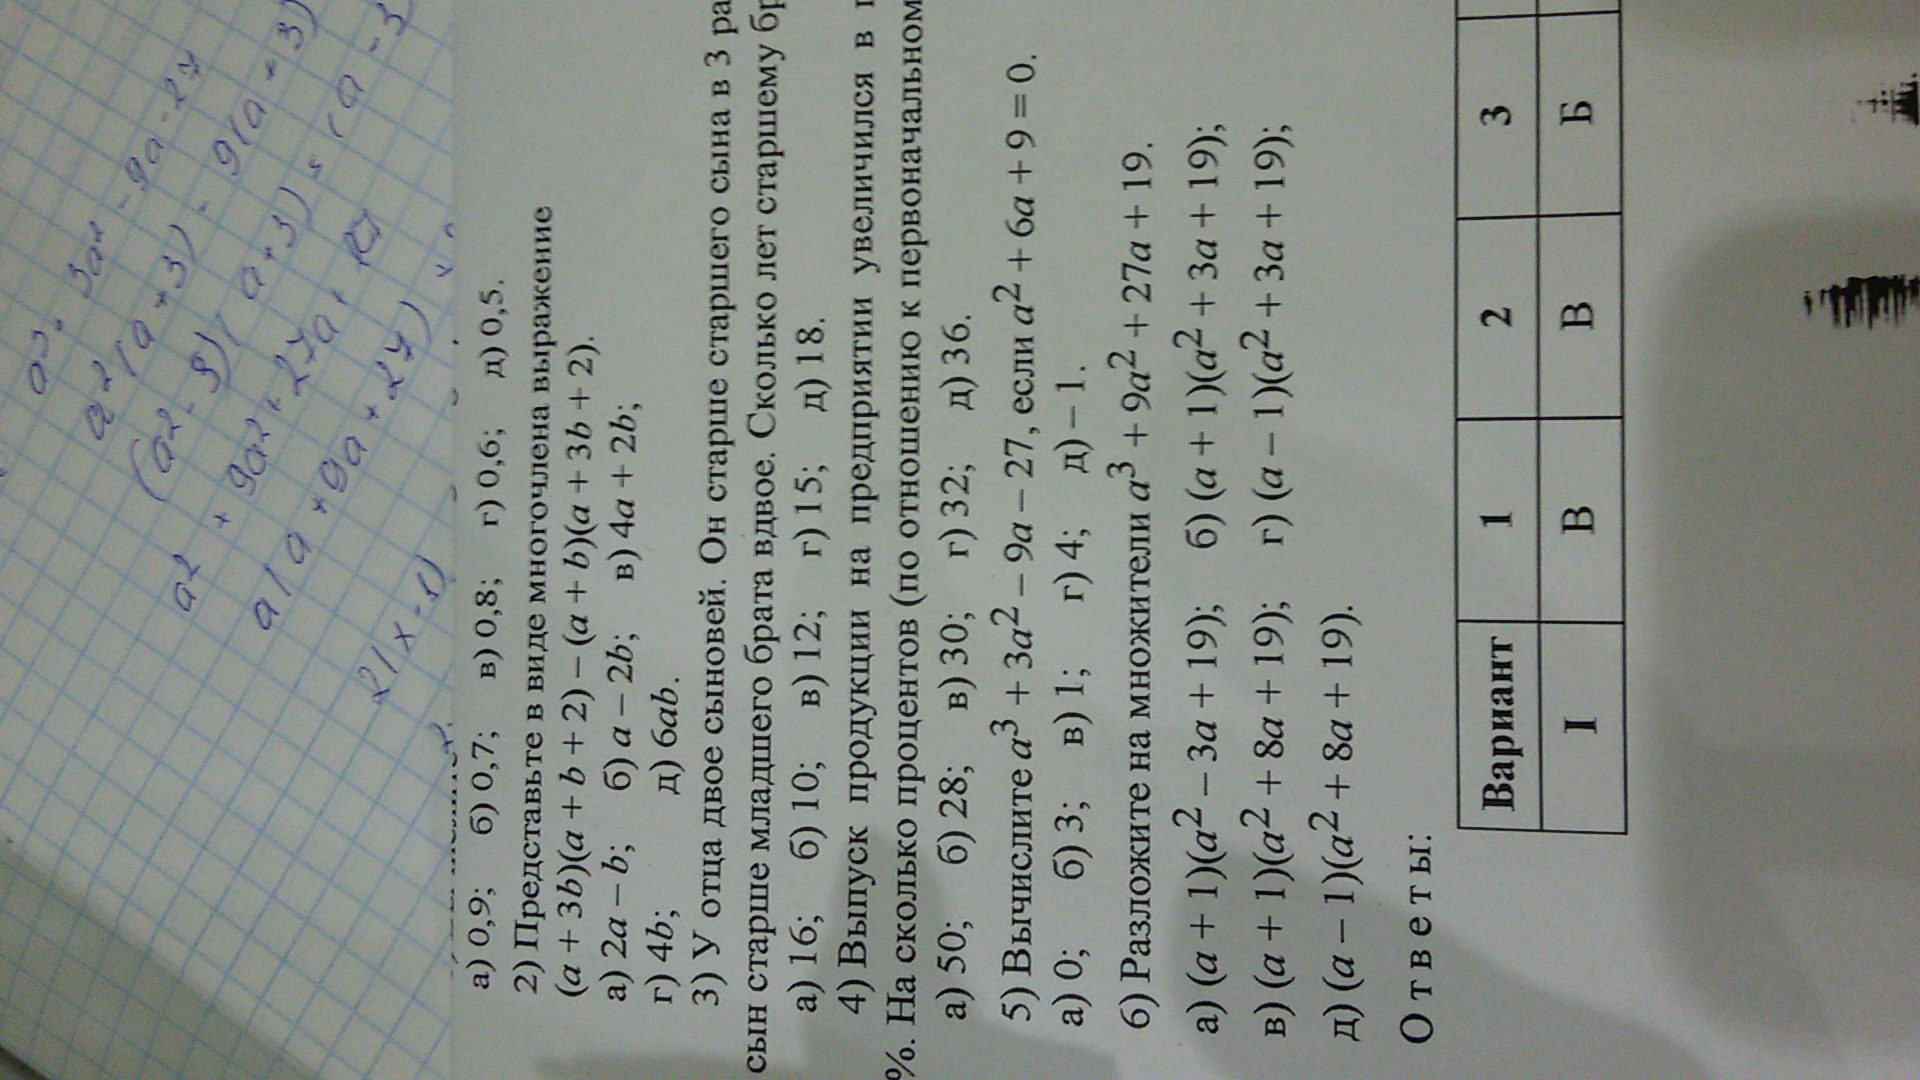 а³ + 3а² - 9а - 27
а²(а + 3) - 9(а + 3)
(а² - 9)(а + 3) = (а - 3
а² + 9а² + 27а + 27
а(а + 9а + 27)
2(х - 1)
а) 0,9; б) 0,7; в) 0,8; г) 0,6; д) 0,5.
2) Представьте в виде многочлена выражение
(a + 3b)(a + b + 2) – (a + b)(a + 3b + 2).
а) 2a – b; б) a – 2b; в) 4a + 2b;
г) 4b; д) 6ab.
3) У отца двое сыновей. Он старше старшего сына в 3 ра
сын старше младшего брата вдвое. Сколько лет старшему бр
а) 16; б) 10; в) 12; г) 15; д) 18.
4) Выпуск продукции на предприятии увеличился в
%. На сколько процентов (по отношению к первоначальном
а) 50; б) 28; в) 30; г) 32; д) 36.
5) Вычислите a³ + 3a² – 9a – 27, если a² + 6a + 9 = 0.
а) 0; б) 3; в) 1; г) 4; д) – 1.
6) Разложите на множители a³ + 9a² + 27a + 19.
а) (a + 1)(a² – 3a + 19); б) (a + 1)(a² + 3a + 19);
в) (a + 1)(a² + 8a + 19); г) (a – 1)(a² + 3a + 19);
д) (a – 1)(a² + 8a + 19).
Ответы:
Вариант 1 2 3
I В В Б